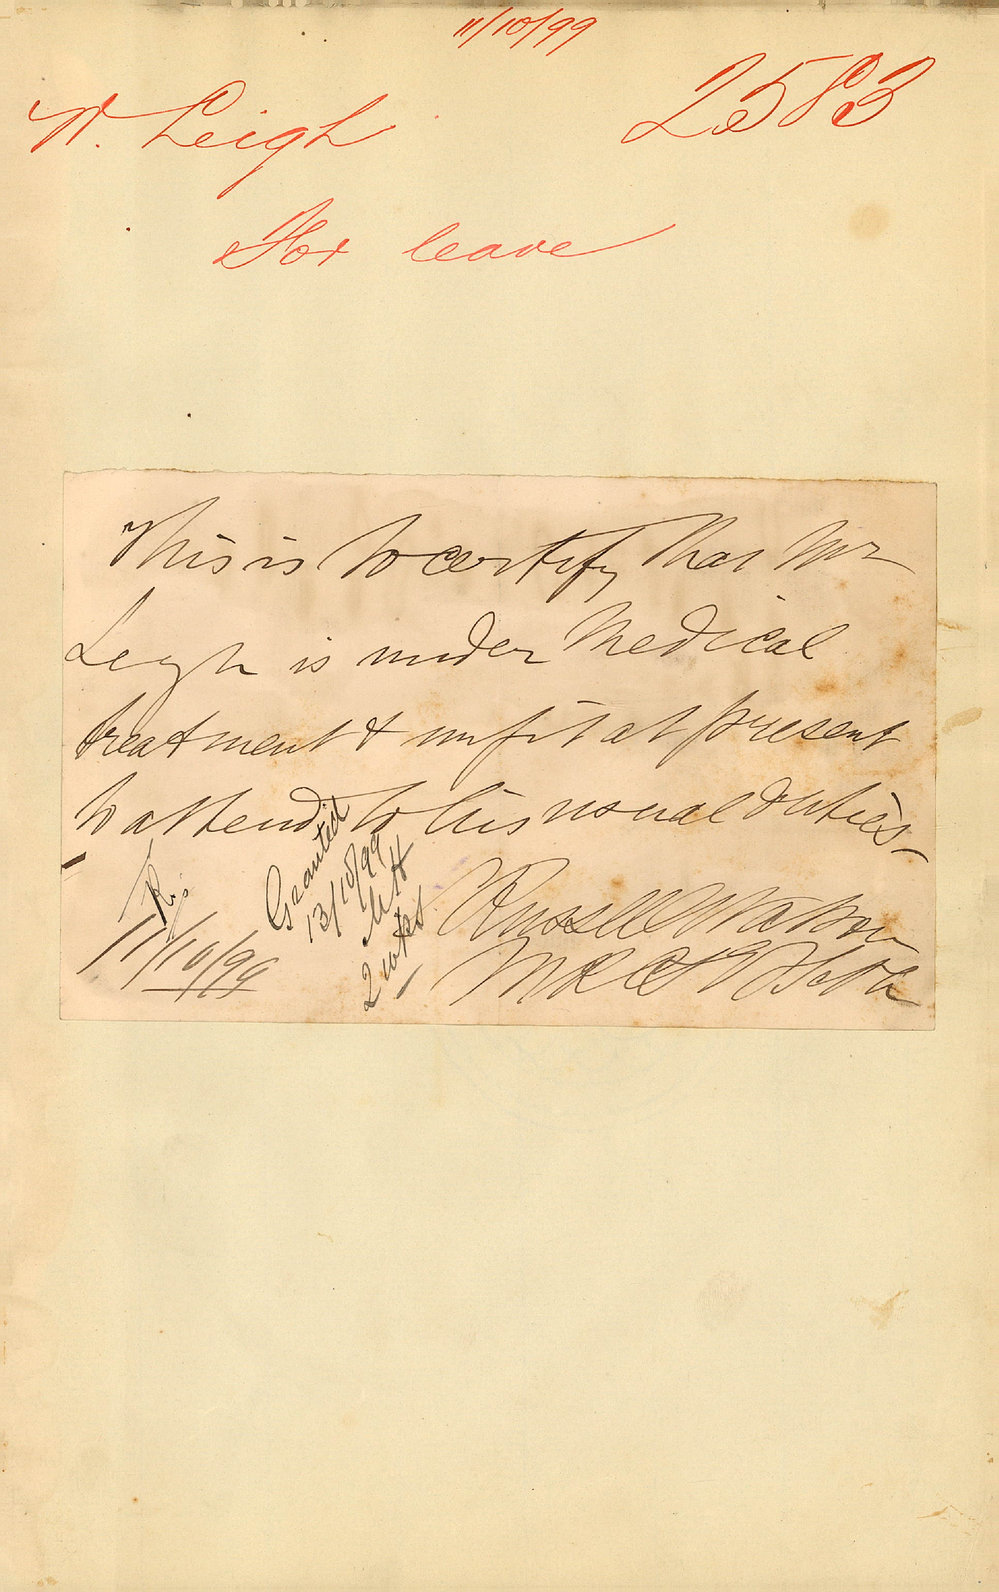 11/10/99
W. Leigh
2583
For leave
This is to certify that Mr
Leigh is under Medical
treatment & unfit at present
to attend to his usual duties -
11/10/99
Granted
13/10/99
2 wks
Russell Watson
MRCS